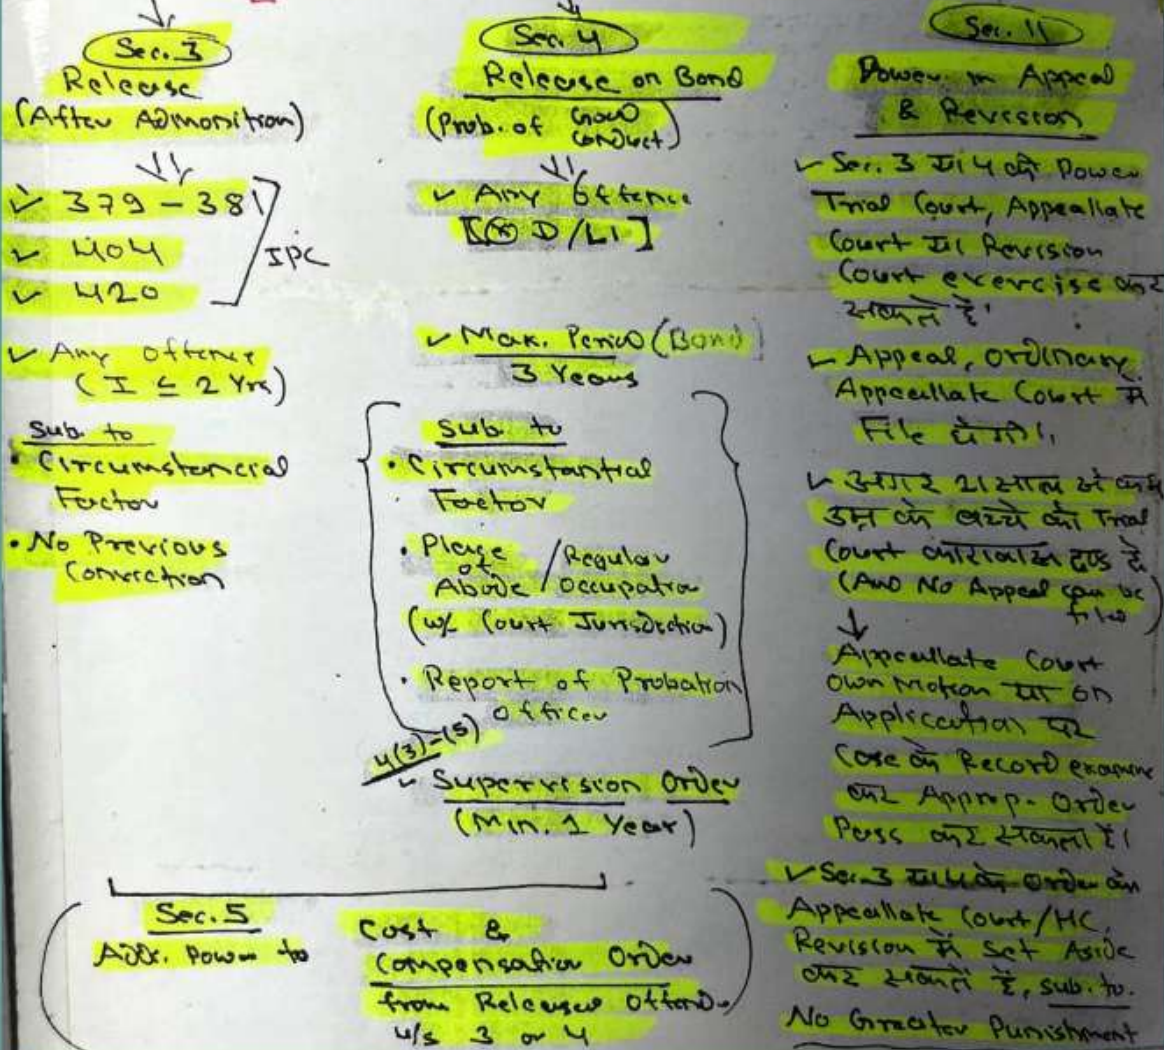 Sec. 3
Release
(After Admonition)
✓ 379 - 381
✓ 404
✓ 420
IPC
✓ Any Offence
(I ≤ 2 Yrs)
Sub. to
• Circumstancial
Factor
• No Previous
Conviction
Sec. 4
Release on Bond
(Prob. of Good
Conduct)
✓ Any Offence
[⊗ D/LI]
✓ Max. Period (Bond)
3 Years
Sub to
• Circumstantial
Factor
• Place
of
Abode / Regular
Occupation
(w/ Court Jurisdiction)
• Report of Probation
Officer
4(3)-(5)
✓ Supervision Order
(Min. 1 Year)
Sec. 5
Add. Power to
Cost &
Compensation Order
from Released Offender
u/s 3 or 4
Sec. 11
Power in Appeal
& Revision
✓ Sec. 3 या 4 की Power
Trial Court, Appeallate
Court या Revision
Court exercise कर
सकते है।
✓ Appeal, Ordinary
Appeallate Court में
File होगी।
✓ अगर 21 साल से कम
उम्र के बच्चे को Trial
Court कारावास दण्ड दे
(And No Appeal can be
filed)
Appeallate Court
Own Motion या on
Application पर
Case के Record examine
कर Approp. Order
Pass कर सकता है।
✓ Sec. 3 या 4 के Order को
Appeallate Court/HC,
Revision में Set Aside
कर सकते है, sub. to.
No Greater Punishment